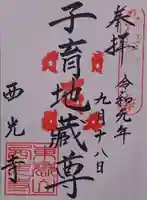 奉拝
令和元年
九月十八日
子育地蔵尊
西光寺